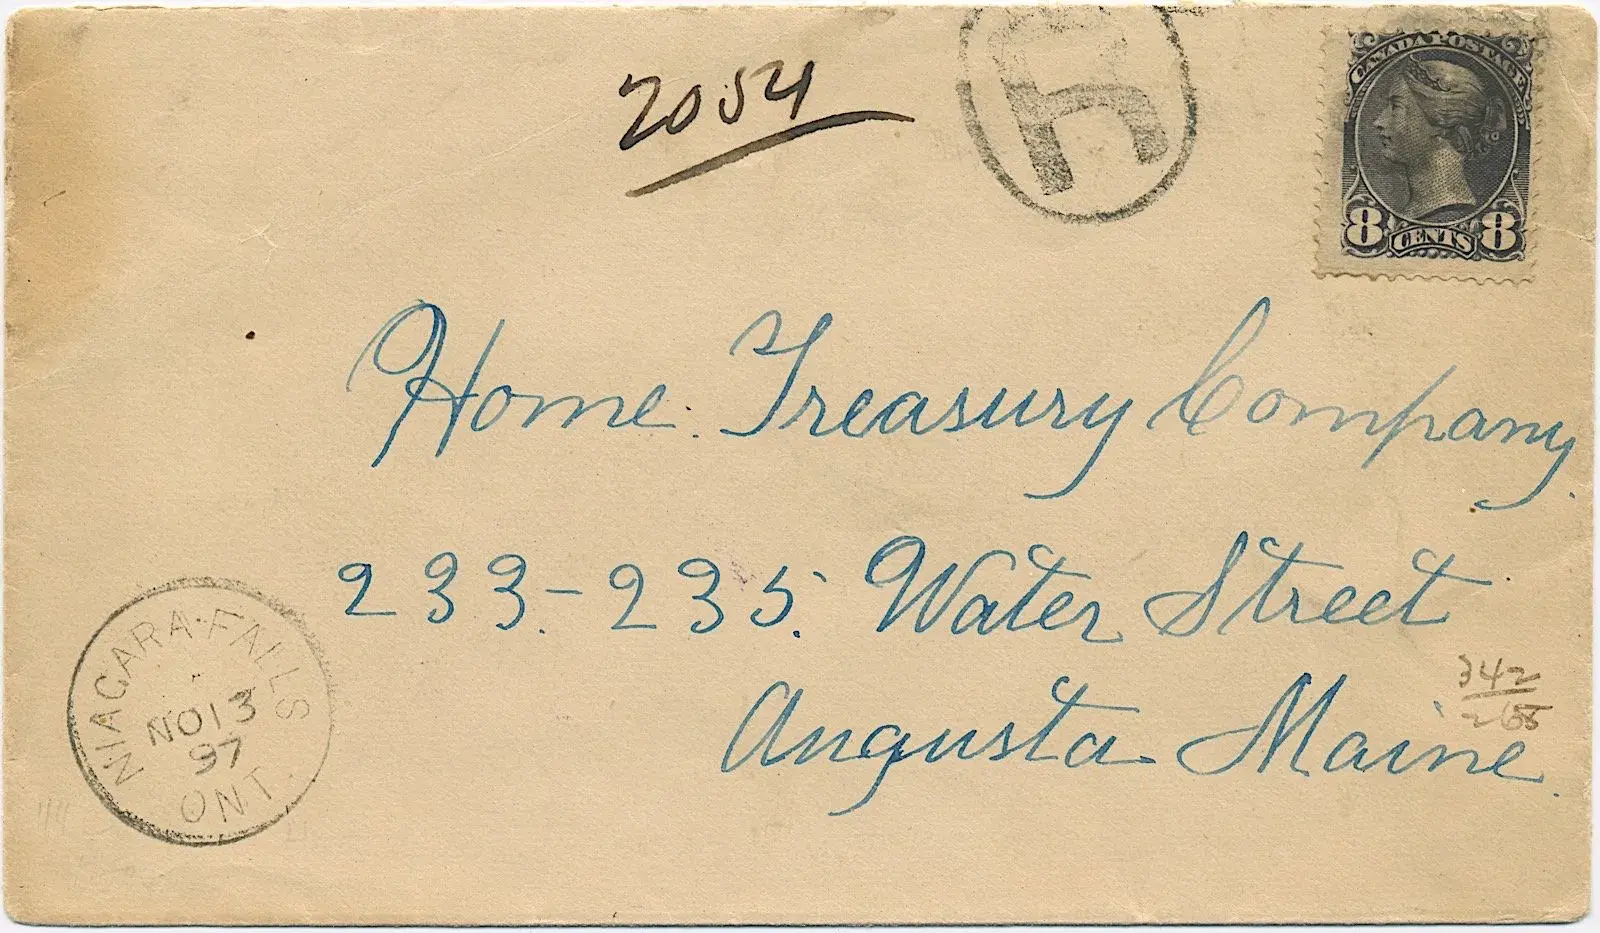 2054
R
CANADA POSTAGE
8 CENTS 8
Home Treasury Company.
233-235. Water Street
Augusta Maine.
342
NIAGARA·FALLS
NO 13
97
ONT.